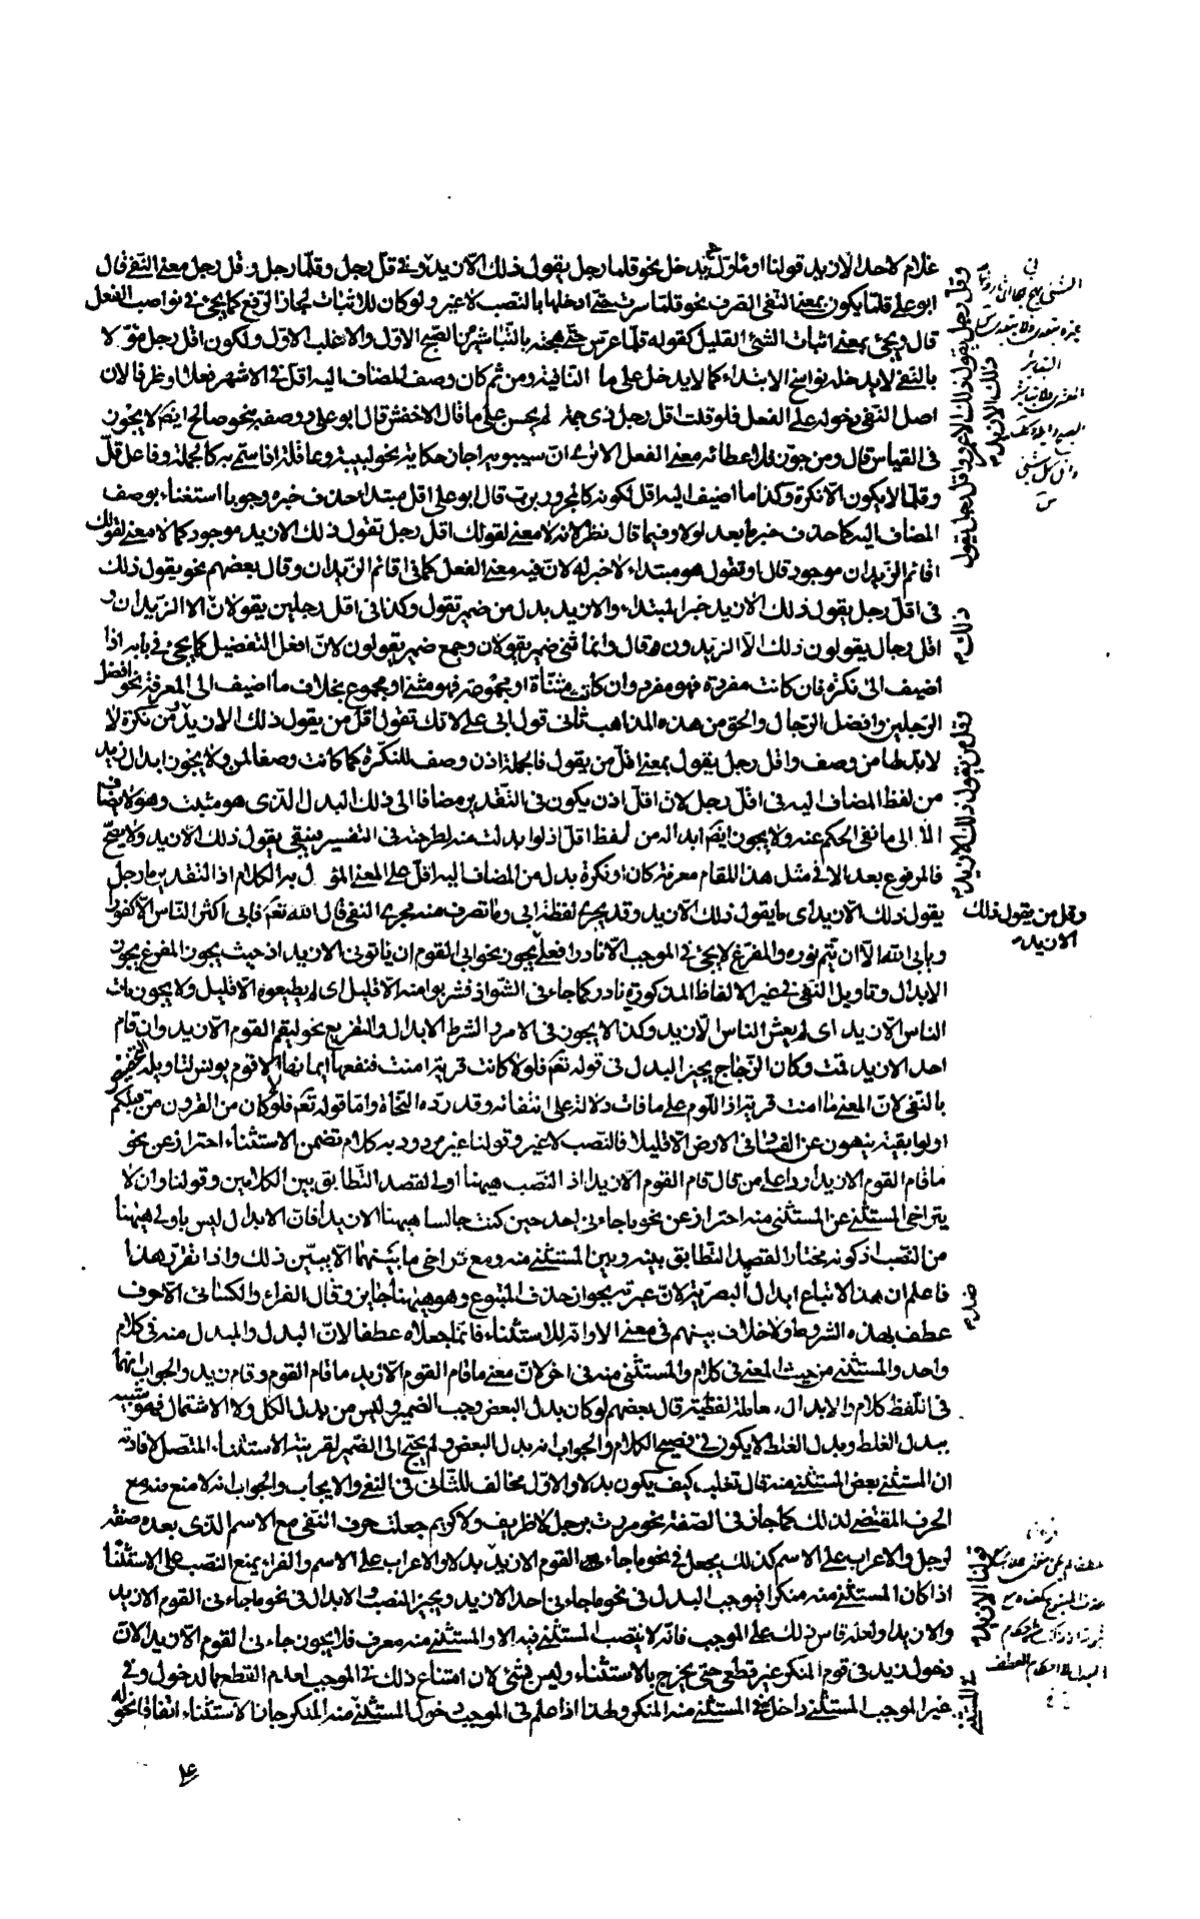 غلام لاحد الا زيد قولنا او مأول به يدخل نحو قلما رجل يقول ذلك الا زيد وفى قل رجل وقلما رجل وقل رجل معنى النفى قال
ابو على قلما يكون بمعنى النفى الصرف نحو قلما سرت حتى ادخلها بالنصب لا غير ولو كان للاثبات لجاز الرفع كما يجئ فى نواصب الفعل
قال ويجئ بمعنى اثبات الشئ القليل كقوله قلما عرس حتى هجته بالتباشير من الصبح الاول والاغلب الاول ولكون اقل رجل مؤولا
بالنفى لا يدخله نواسخ الابتداء كما لا يدخل على ما النافية ومن ثم كان وصف المضاف اليه اقل فى الاشهر فعلا او ظرفا لان
اصل النفى دخوله على الفعل فلو قلت اقل رجل ذى جمة لم يحسن على ما قال الاخفش قال ابو على وصفه بنحو صالح ايضا لا يجوز
فى القياس قال ومن جوز فلاعطائه معنى الفعل الا ترى ان سيبويه اجاز حكاية نحو لبيبة وعاقلة اذا سمى به كالجملة وفاعل قل
وقلما لا يكون الا نكرة وكذا ما اضيف اليه اقل لكونه كالمجرور برب قال ابو على اقل مبتدأ حذف خبره وجوبا استغناء بوصف
المضاف اليه كما حذف خبر ما بعد لولا وفيما قال نظر لانه لا معنى لقولك اقل رجل تقول ذلك الا زيد موجود كما لا معنى لقولك
اقائم الزيدان موجود قال او تقول هو مبتدأ لا خبر له لان فيه معنى الفعل كما فى اقائم الزيدان وقال بعضهم نحو يقول ذلك
فى اقل رجل يقول ذلك الا زيد خبر المبتداء والا زيد بدل من ضمير تقول وكذا فى اقل رجلين يقولان الا الزيدان و
اقل رجال يقولون ذلك الا الزيدون وقال وانما ثنى ضمير يقولان وجمع ضمير يقولون لان افعل التفضيل كما يجئ فى بابه اذا
اضيف الى نكرة فان كانت مفردة فهو مفرد وان كانت مثناة او مجموعة فهو مثنى او مجموع بخلاف ما اضيف الى المعرفة نحو افضل
الرجلين وافضل الرجال والحق من هذه المذاهب ثانى قولى ابى على لانك تقول اقل من يقول ذلك الا زيد ومن نكرة لا
لابد لها من وصف واقل رجل يقول بمعنى اقل من يقول فالجملة اذن وصف للنكرة كما كانت وصفا لمن ولا يجوز ابدال زيد
من لفظ المضاف اليه فى اقل رجل لان اقل اذن يكون فى التقدير مضافا الى ذلك البدل الذى هو مثبت وهو لا يضاف
الا الى ما نفى الحكم عنه ولا يجوز ايضا ابداله من لفظ اقل اذ لو ابدلت منه لطرحته فى التفسير فيبقى يقول ذلك الا زيد ولا يصح
فالمرفوع بعد الا فى مثل هذا المقام معرفة كان او نكرة بدل من المضاف اليه اقل على المعنى المؤول به الكلام اذ التقدير ما رجل
يقول ذلك الا زيد اى ما يقول ذلك الا زيد وقد يجرى لفظة ابى وما تصرف منه مجرى النفى قال الله تعم فابى اكثر الناس الا كفورا
ويابى الله الا ان يتم نوره والمفرغ لا يجئ فى الموجب الا نادرا فعلى يجوز نحو ابى القوم ان ياتونى الا زيد اذ حيث يجوز المفرغ يجوز
الابدال وتاويل النفى فى غير الالفاظ المذكورة نادر كما جاء فى الشواذ فشربوا منه الا قليل اى لم يطيعوه الا قليل ولا يجوز مات
الناس الا زيد اى لم يعش الناس الا زيد وكذا لا يجوز فى الامر والشرط الابدال والتفريع نحو ليقم القوم الا زيد وان قام
احد الا زيد قمت وكان الزجاج يجيز البدل فى قوله تعم فلولا كانت قرية امنت فنفعها ايمانها الا قوم يونس لتاويله التحضيض
بالنفى لان المعنى ما امنت قرية اذ اللوم على ما فات دلالة على انتفائه وقد رده النحاة واما قوله تعم فلولا كان من القرون من قبلكم
اولوا بقية ينهون عن الفساد فى الارض الا قليلا فالنصب لا غير وقولنا غير مردود به كلام تضمن الاستثناء احتراز عن نحو
ما قام القوم الا زيدا ردا على من قال قام القوم الا زيدا اذ النصب هيهنا اولى لقصد التطابق بين الكلامين وقولنا وان لا
يتراخى المستثنى عن المستثنى منه احتراز عن نحو ما جاءنى احد حين كنت جالسا هيهنا الا زيدا فان الابدال ليس باولى هيهنا
من النصب اذ كونه مختارا لقصد التطابق بينه وبين المستثنى منه ومع تراخى ما بينهما لا يتبين ذلك واذا تقرر هذا
فاعلم ان هذا الاتباع ابدال البصرية لان عبرته بجواز حذف المتبوع وهو هيهنا جايز وقال الفراء والكسائى الا حرف
عطف بهذه الشروط ولا خلاف بينهم فى معنى الا وانه للاستثناء فانما جعلاه عطفا لان البدل والمبدل منه فى كلام
واحد والمستثنى من حيث المعنى فى كلام والمستثنى منه فى اخر لان معنى ما قام القوم الا زيد ما قام القوم وقام زيد والجواب انهما
فى اللفظ كلام والابدال معاملة لفظية قال بعضهم لو كان بدل البعض وجب الضمير وليس من بدل الكل ولا الاشتمال فهو شبيه
ببدل الغلط وبدل الغلط لا يكون فى فصيح الكلام والجواب انه بدل البعض ولم يحتج الى الضمير لقرينة الاستثناء المتصل لافادته
ان المستثنى بعض المستثنى منه قال ثعلب كيف يكون بدلا والاول مخالف للثانى فى النفى والايجاب والجواب انه لا منع منه مع
الحرف المقتضى لذلك كما جاز فى الصفة نحو مررت برجل لا ظريف ولا كريم جعلت حرف النفى مع الاسم الذى بعده صفة
لرجل والاعراب على الاسم كذلك يجعل فى نحو ما جاءنى القوم الا زيد بدلا والاعراب على الاسم والفراء يمنع النصب على الاستثناء
اذا كان المستثنى منه منكرا فيوجب البدل فى نحو ما جاءنى احد الا زيد ويجيز النصب والابدال فى نحو ما جاءنى القوم الا زيد
والا زيدا ولعله قاس ذلك على الموجب فانه لا ينصب المستثنى فيه الا والمستثنى منه معرف فلا يجوز جاءنى القوم الا زيدا لان
دخول زيد فى قوم المنكر غير قطعى حتى يخرج بالاستثناء وليس بشئ لان امتناع ذلك فى الموجب لعدم القطع بالدخول وفى
غير الموجب المستثنى داخل فى المستثنى منه المنكر ولهذا اذا علم فى الموجب دخول المستثنى منه المنكر جاز الاستثناء اتفاقا نحو له
وقل رجل يقول ذلك الا عمرو واقل رجل يقول
ذلك الا زيد
ذلك
وقل من يقول ذلك الا زيد
وقل من يقول ذلك
الا زيد
قولنا الا زيد